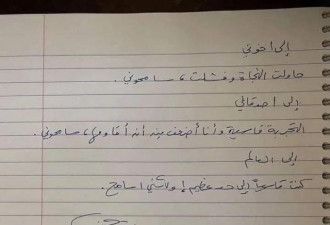 إلى اخوتي
حاولت النجاة وفشلت، سامحوني.
إلى اصدقائي
التجربة قاسية وأنا أضعف من أن أقاومها، سامحوني.
إلى العالم
كنت قاسياً إلى حد عظيم، ولكني اسامح.